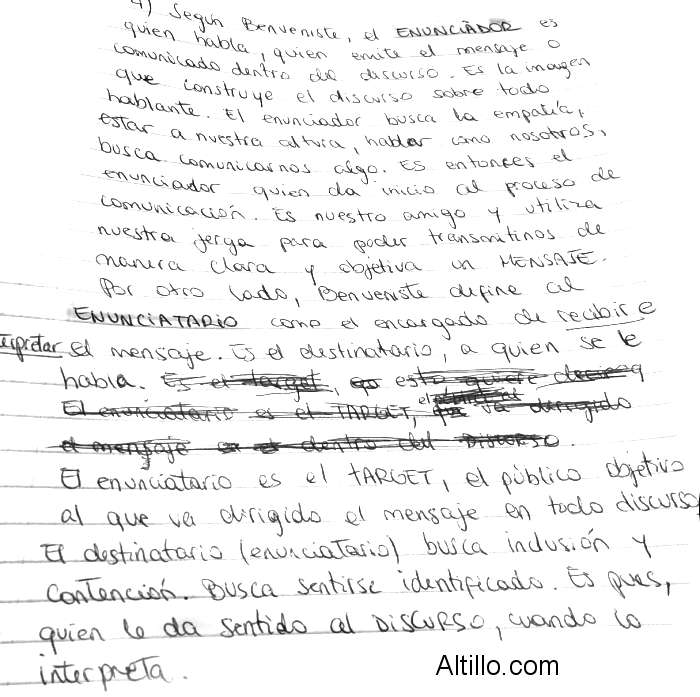 4) Según Benveniste, el ENUNCIADOR es
quien habla, quien emite el mensaje o
comunicado dentro del discurso. Es la imagen
que construye el discurso sobre todo
hablante. El enunciador busca la empatía,
estar a nuestra altura, hablar como nosotros,
busca comunicarnos algo. Es entonces el
enunciador quien da inicio al proceso de
comunicación. Es nuestro amigo y utiliza
nuestra jerga para poder transmitirnos de
manera clara y objetiva un MENSAJE.
Por otro lado, Benveniste define al
ENUNCIATARIO como el encargado de recibir e
interpretar el mensaje. Es el destinatario, a quien se le
habla. Es el target, esto quiere
El enunciatario es el TARGET, va dirigido
el mensaje dentro del DISCURSO.
El enunciatario es el TARGET, el público objetivo
al que va dirigido el mensaje en todo discurso
El destinatario (enunciatario) busca inclusión y
contención. Busca sentirse identificado. Es pues,
quien le da sentido al DISCURSO, cuando lo
interpreta.
Altillo.com